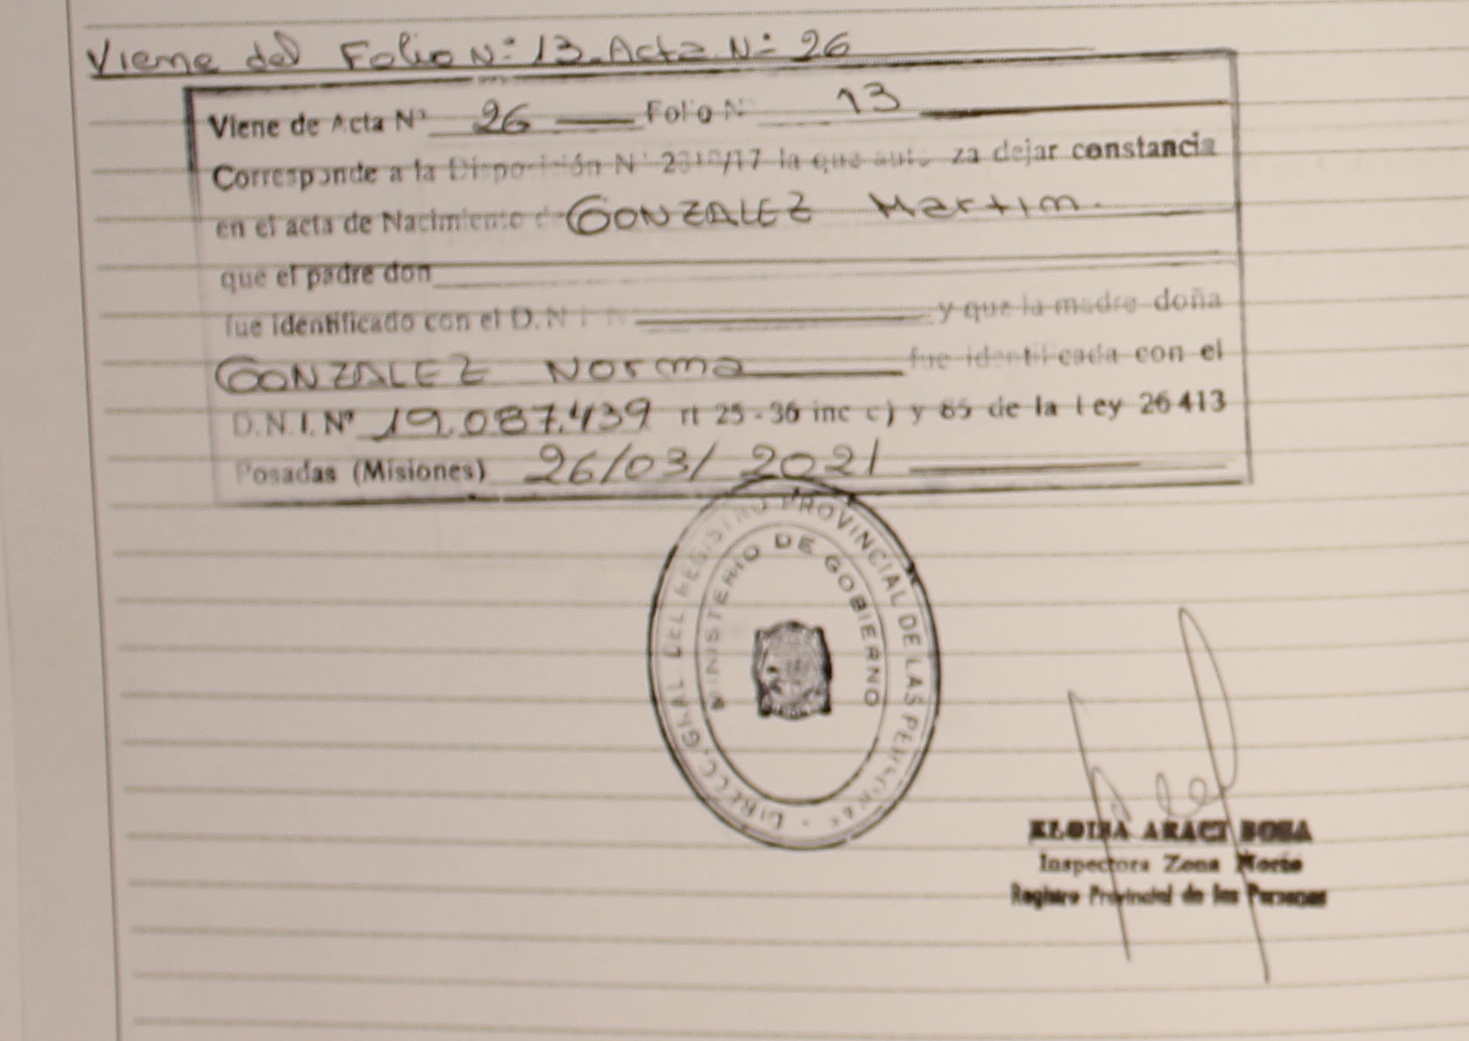 Viene del Folio N: 13. Acta. N: 26
Viene de Acta N° 26 Folio N° 13
Corresponde a la Disposición N° /17 la que autoriza dejar constancia
en el acta de Nacimiento de GONZALEZ Martin.
que el padre don
fue identificado con el D.N.I. N
y que la madre doña
GONZALEZ Norma fue identificada con el
D.N.I. N° 19.087.439 rt 25-36 inc c) y 65 de la Ley 26413
Posadas (Misiones) 26/03/2021
DIRECC. GRAL DEL REGISTRO PROVINCIAL DE LAS PERSONAS
MINISTERIO DE GOBIERNO
ARACI
Inspectora Zona Norte
Registro Provincial de las Personas